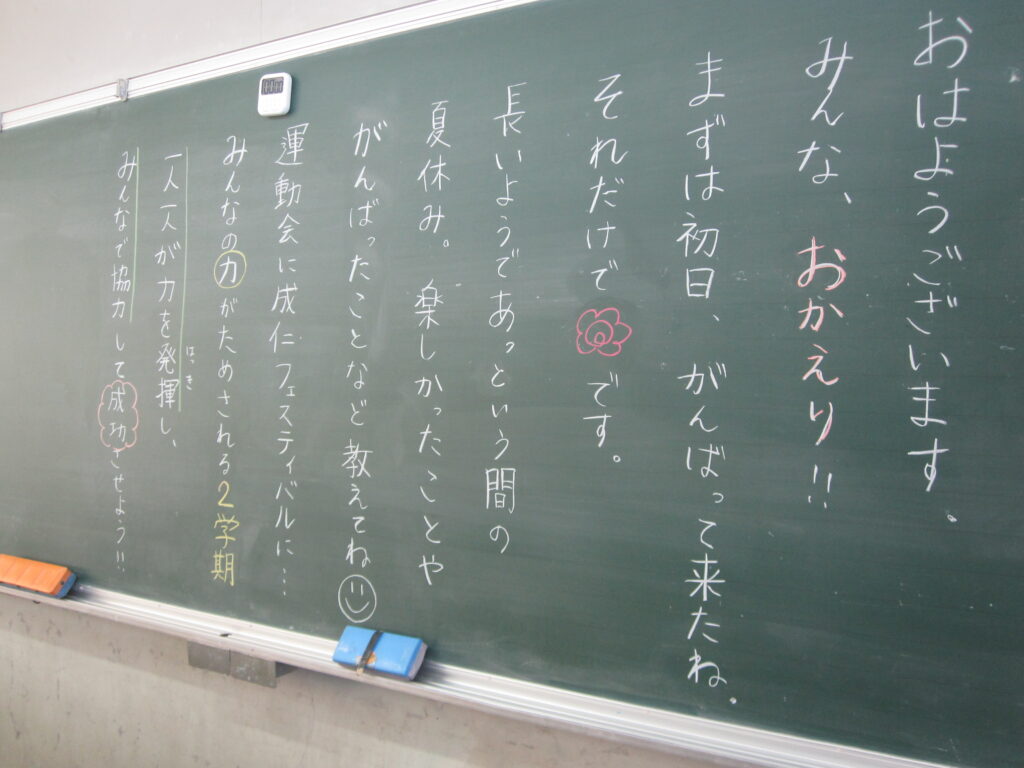 おはようございます。
みんな、おかえり!!
まずは初日、がんばって来たね。
それだけで
です。
長いようであっという間の
夏休み。楽しかったことや
がんばったことなど教えてね
運動会に成仁フェスティバルに…
みんなの力がためされる2学期
一人一人が力を発揮し、
はっき
みんなで協力して成功させよう!!